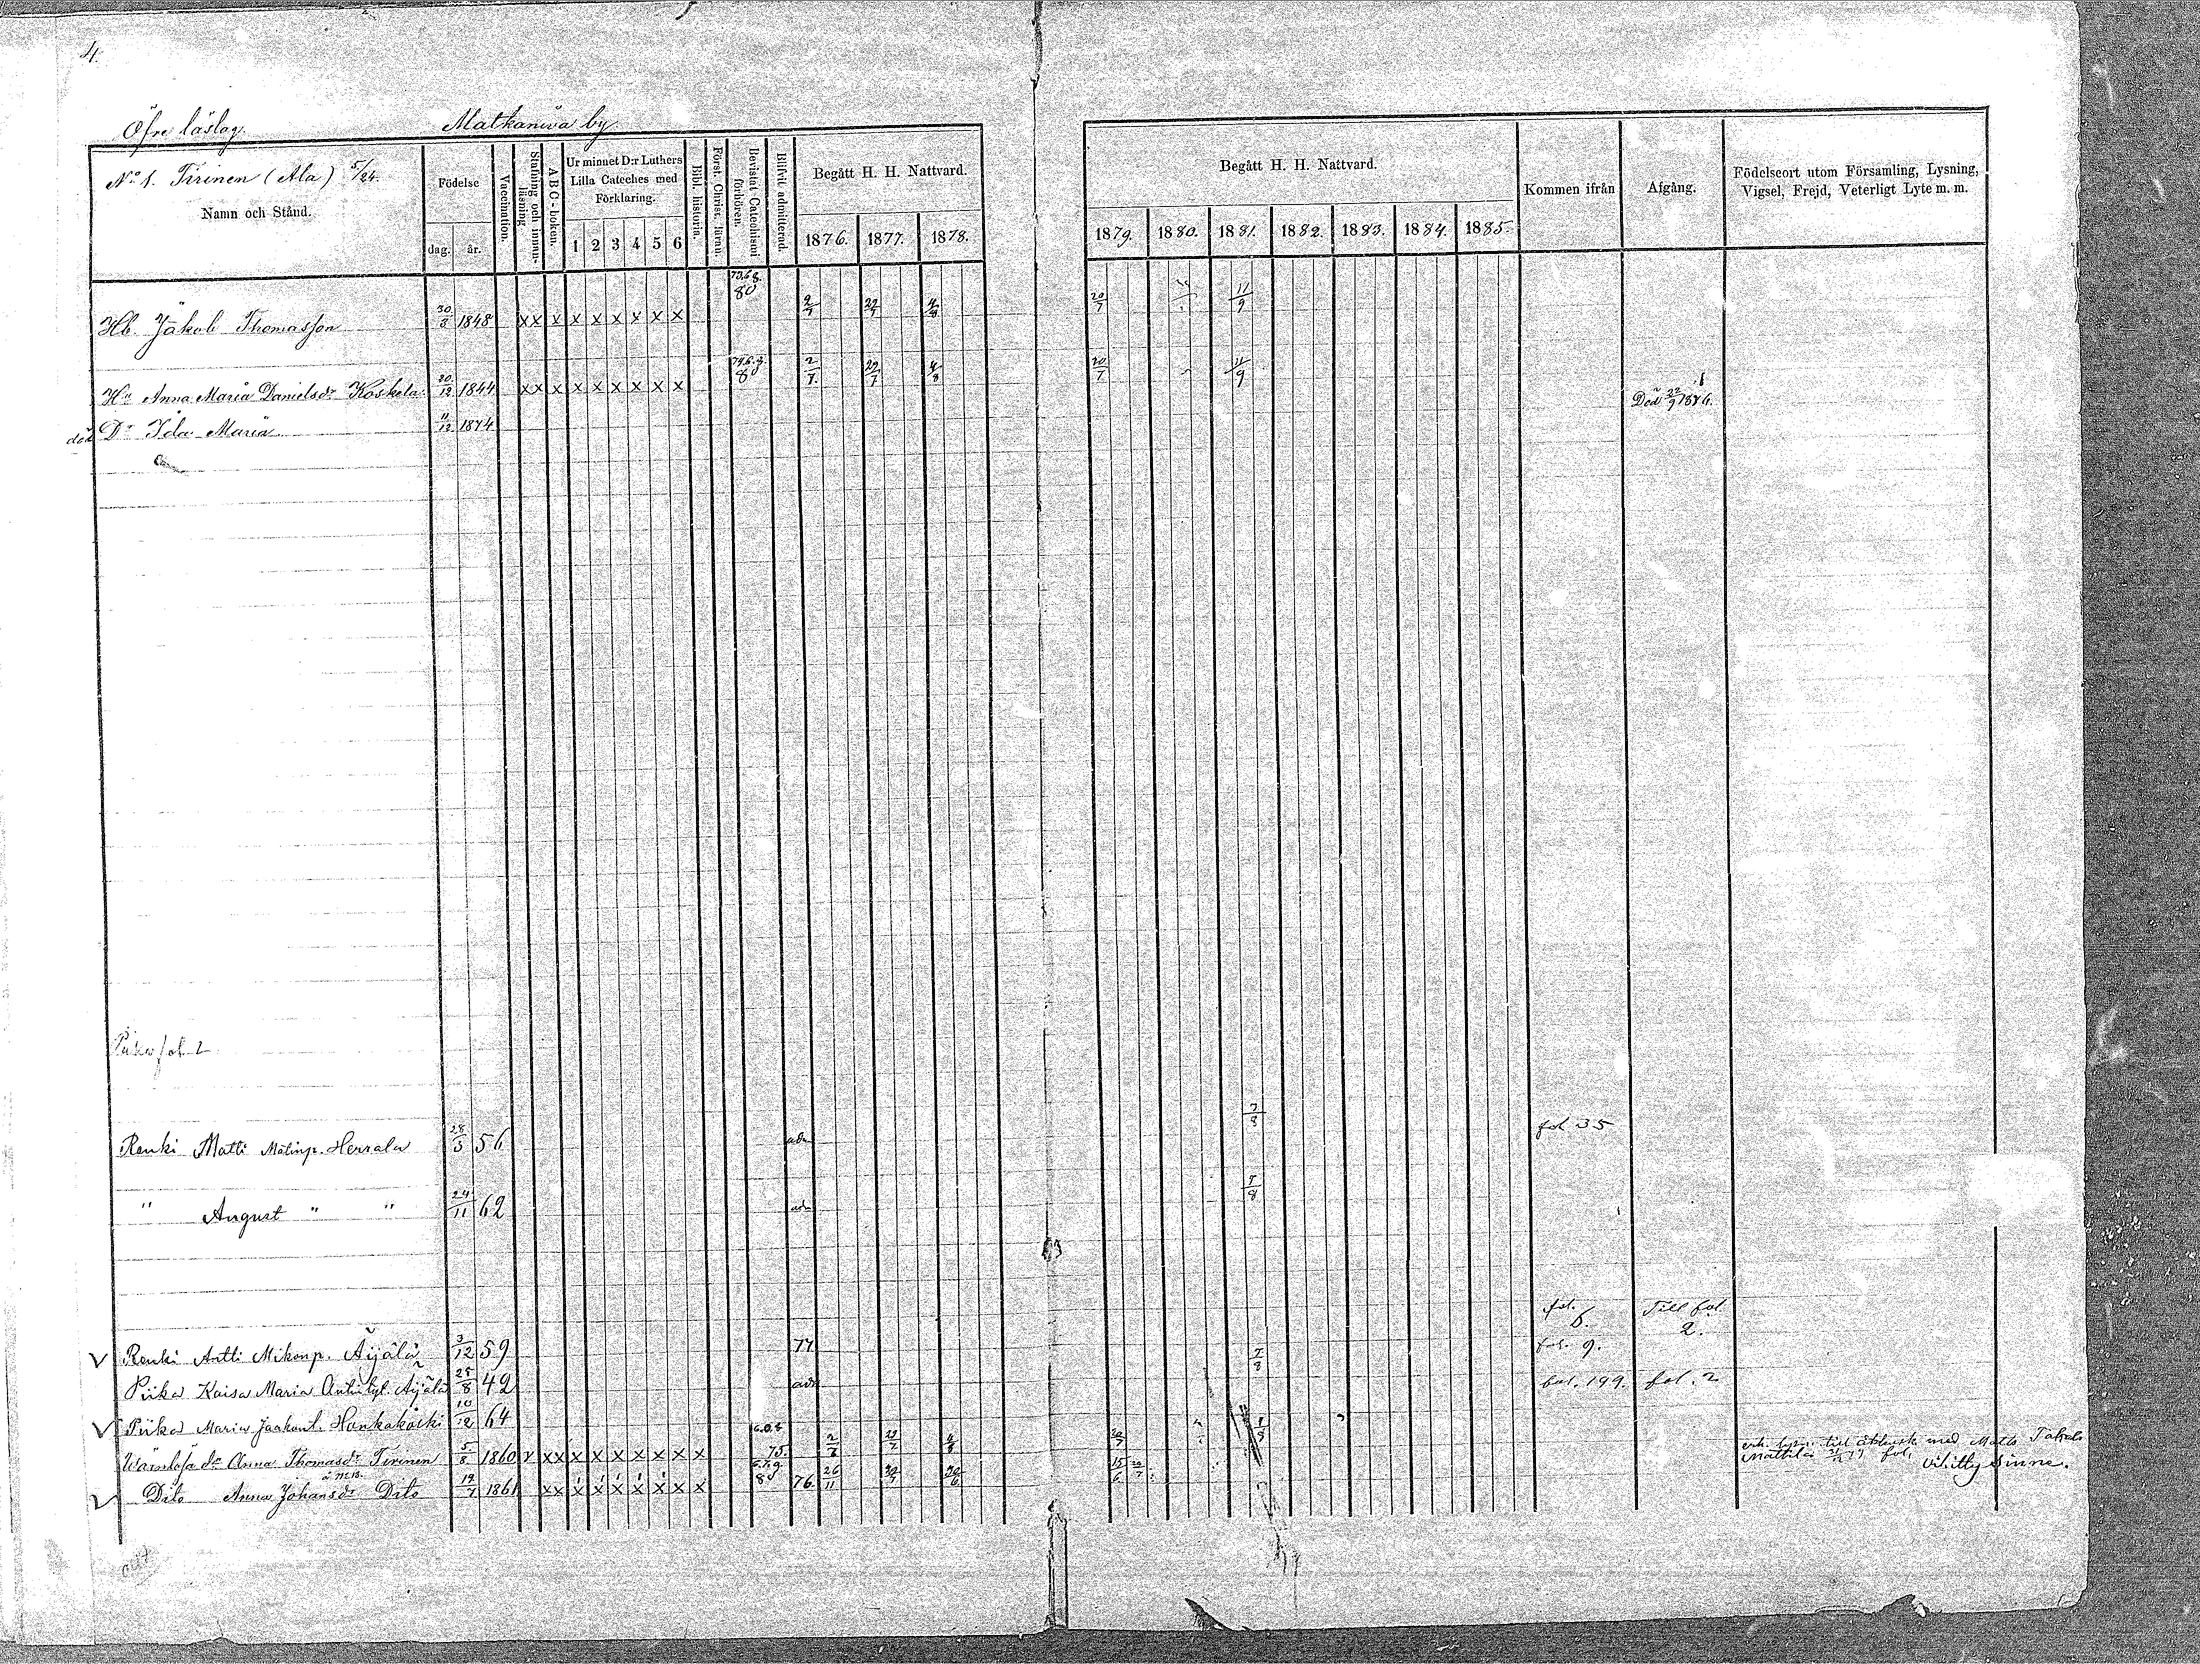 4.
Öfre läslag. Matkaniva by
No 1. Tirinen (Ala) 5/24.
Namn och Stånd.
Födelse
dag. år.
Vaccination.
Stafning och innanläsning
A B C-boken.
Ur minnet D:r Luthers Lilla Cateches med Förklaring.
1 2 3 4 5 6
Bibl. historia.
Först. Christ. läran.
Bevistat Catechismi förhören.
Blifvit admitterad.
Begått H. H. Nattvard.
1876. 1877. 1878.
Begått H. H. Nattvard.
1879. 1880. 1881. 1882. 1883. 1884. 1885.
Kommen ifrån
Afgång.
Födelseort utom Församling, Lysning, Vigsel, Frejd, Veterligt Lyte m. m.
Hb. Jakob Thomasson 30/8 1848 x x x x x x x x x 80 2/7 22/7 4/8 20/7 11/9
Hu Anna Maria Danielsdr Koskela 20/12 1844 x x x x x x x x x 80 2/7 22/7 4/8 20/7 11/9
död Dr Ida Maria 11/12 1874 Död 22/9 1876.
Piika fol. 2
Renki Matti Matinp. Herrala 28/5 56 adm 7/8 fol 35
" August " " 24/11 62 adm 7/8
fol. 6. Till fol. 2.
V Renki Antti Mikonp. Äijälä 3/12 59 77 7/8 fol. 9.
Piika Kaisa Maria Antintyt. Äijälä 25/8 42 adm fol. 199. fol. 2
V Piika Maria Jaakont. Honkakoski 10/12 64
Anna Thomasdr Tirinen 5/8 1860 x x x x x x x x x x x 75. 2/7 22/7 4/8 20/7
V Dito Anna Johansdr Dito 19/7 1861 x x x x x x x x x x 80 76. 26/11 15/6
till med Matts
Mattila fol.